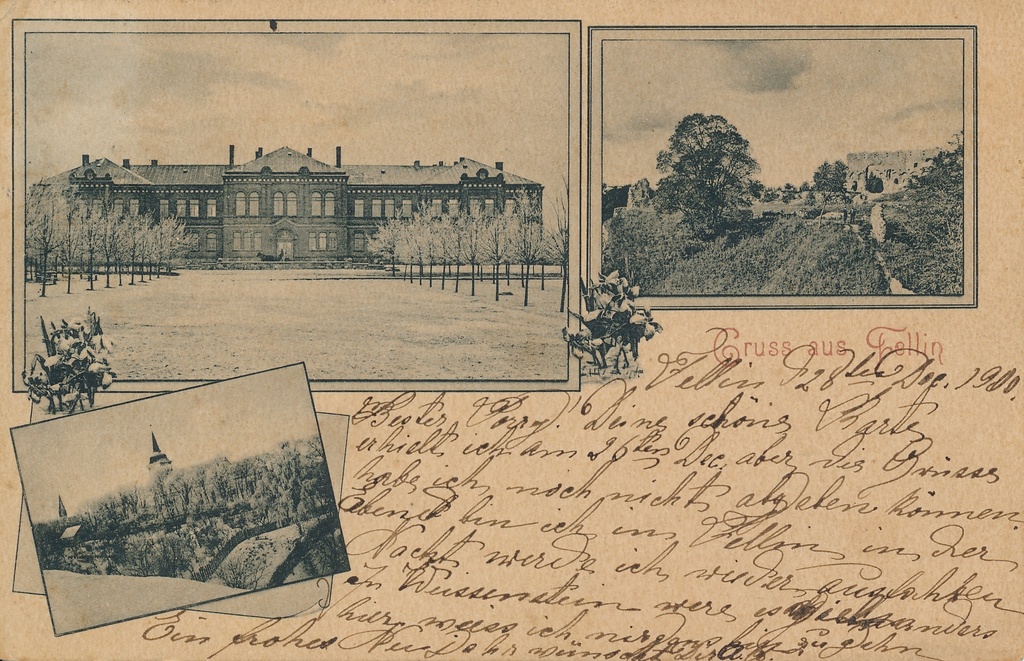 Gruss aus Fellin
Fellin d 28ten Dec. 1900.
Bester Deine schöne Karte
erhielt ich am 26ten Dec. aber die Grüsse
habe ich noch nicht abgeben können.
Abend bin ich in Fellin in der
Nacht werde ich wieder ausfahren
in Weissenstein were es anders
hier weiss ich nirgens hin zu gehn
Ein frohes Neujahr wünscht Dir